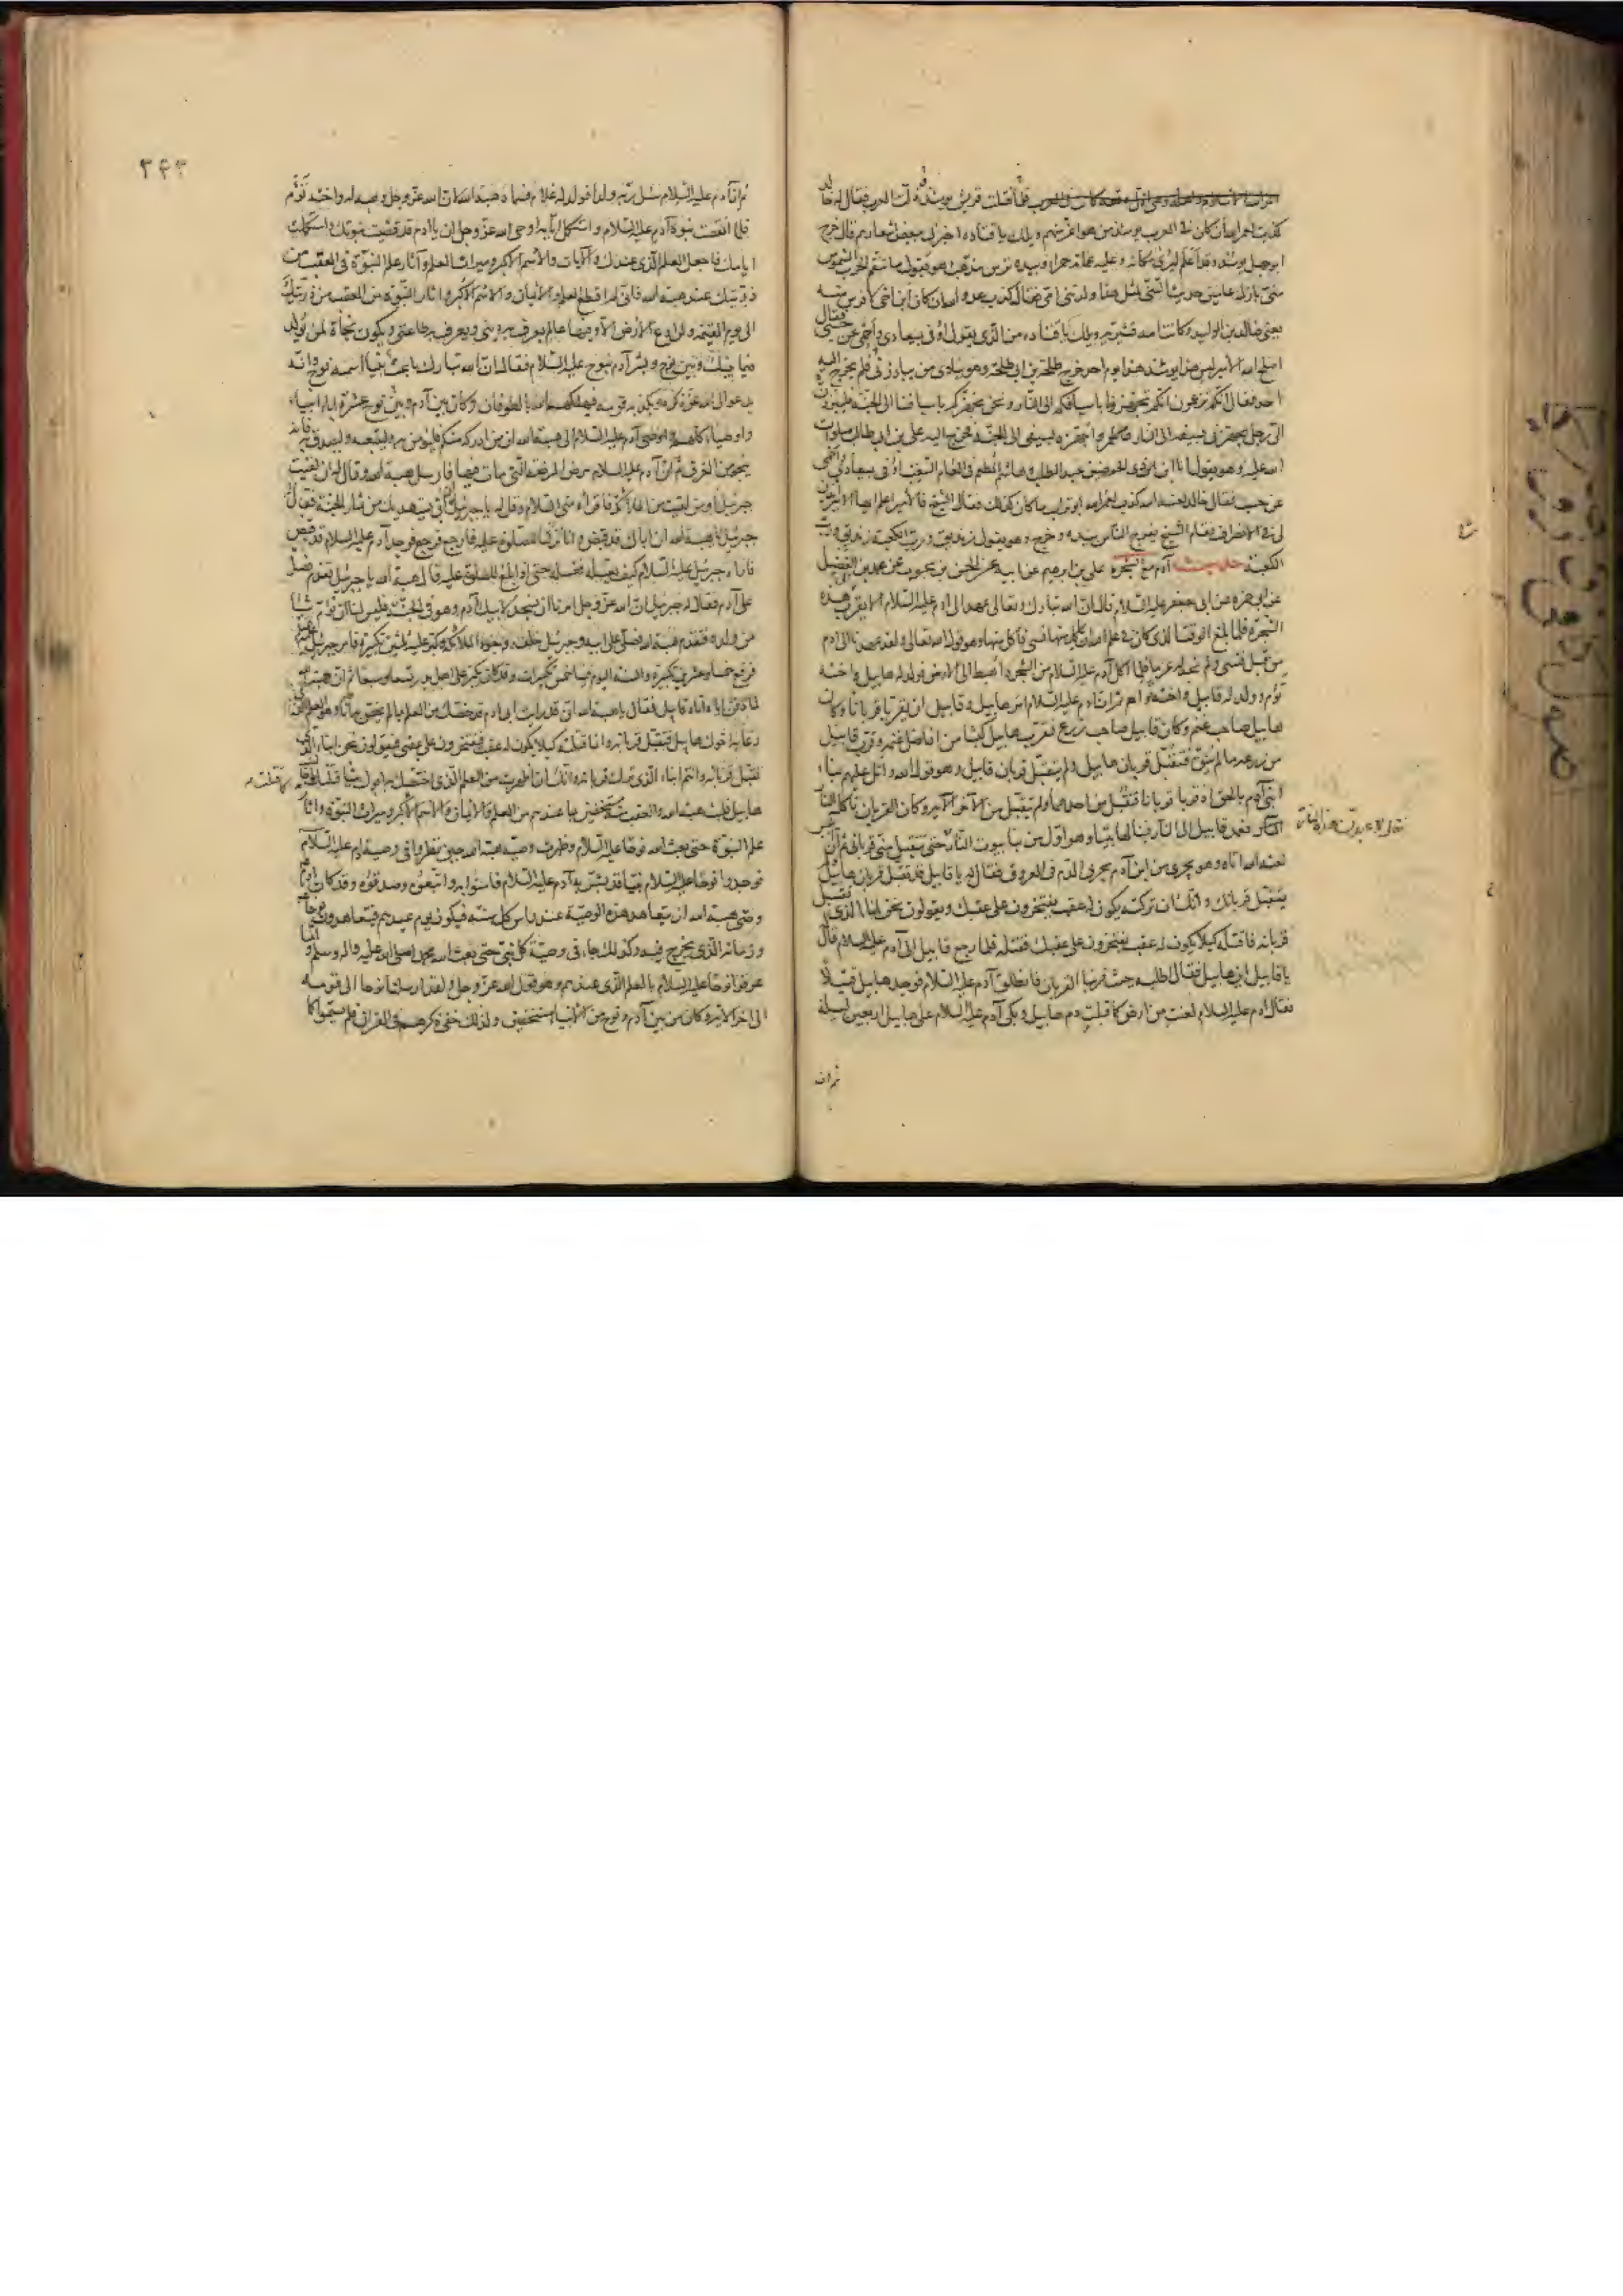 كذبت لعمرى ان كان فى العرب يومئذ من هو اعز منهم ويلك يا قتاده اخبرنى ببعض اشعارهم قال خرج
ابو جهل يومئذ وقد اعلم ليرى مكانه وعليه عمامة حمراء وبيده ترس مذهب وهو يقول ما تنقم الحرب الشموس
منى بازل عامين حديث السن لمثل هذا ولدتنى امى فقال كذب عدو الله ان كان ابن اخى لافرس منه
يعنى خالد بن الوليد وكانت امه قشيرية ويلك يا قتاده من الذى يقول اوفى بميعادى واحمى عن حسب فقال
اصلح الله الامير ليس هذا يومئذ هذا يوم احد خرج طلحة بن ابى طلحة وهو ينادى من يبارز فلم يخرج اليه
احد فقال انكم تزعمون انكم تجهزونا باسيافكم الى النار ونحن نجهزكم باسيافنا الى الجنة فليبرزن
الى رجل يجهزنى بسيفه الى النار واجهزه بسيفى الى الجنة فخرج اليه على بن ابى طالب صلوات
الله عليه وهو يقول انا ابن ذى الحوضين عبد المطلب وهاشم المطعم فى العام السغب اوفى بميعادى واحمى
عن حسب فقال خالد لعنه الله كذب لعمر الله ابو تراب ما كان كذلك فقال الشيخ ايها الامير ائذن
لى فى الانصراف فقام الشيخ يفرج الناس بيده وخرج وهو يقول زنديق ورب الكعبة زنديق ورب
الكعبة حديث آدم مع الشجرة على بن ابرهيم عن ابيه عن الحسن بن محبوب عن محمد بن الفضيل
عن ابى حمزه عن ابى جعفر عليه السلام قال ان الله تبارك وتعالى عهد الى ادم عليه السلام الا يقرب هذه
الشجرة فلما بلغ الوقت الذى كان فى علم الله ان ياكل منها نسى فاكل منها وهو قول الله تعالى ولقد عهدنا الى ادم
من قبل فنسى ولم نجد له عزما فلما اكل آدم عليه السلام من الشجرة اهبط الى الارض فولد له هابيل واخته
توم وولد له قابيل واخته توام ثم ان ادم عليه السلام امر هابيل وقابيل ان يقربا قربانا وكان
هابيل صاحب غنم وكان قابيل صاحب زرع فقرب هابيل كبشا من افاضل غنمه وقرب قابيل
من زرعه ما لم ينق فتقبل قربان هابيل ولم يتقبل قربان قابيل وهو قول الله واتل عليهم نبا
ابنى آدم بالحق اذ قربا قربانا فتقبل من احدهما ولم يتقبل من الآخر الآية وكان القربان تاكله النار
فعمد قابيل الى النار فبنا لها بيتا وهو اول من بنا بيوت النار حتى يتقبل منى قربانى ثم ان
لعنه الله اتاه وهو يجرى من ابن آدم مجرى الدم فى العروق فقال له يا قابيل قد تقبل قربان هابيل
يتقبل قربانك وانك ان تركته يكون له عقب يفتخرون على عقبك ويقولون نحن ابناء الذى تقبل
قربانه فاقتله كيلا يكون له عقب يفتخرون على عقبك فقتله فلما رجع قابيل الى آدم عليه السلام قال
يا قابيل اين هابيل فقال اطلبه حيث قربنا القربان فانطلق آدم عليه السلام فوجد هابيل قتيلا
فقال ادم عليه السلام لعنت من ارض كما قبلت دم هابيل وبكى آدم عليه السلام على هابيل اربعين ليلة
ثم ان
٣۴٣
ثم ان آدم عليه السلام سئل ربه ولدا فولد له غلام فسماه هبة الله لان الله عز وجل وهبه له واخته توم
فلما انقضت نبوة آدم عليه السلام واستكمل ايامه اوحى الله عز وجل ان يا ادم قد قضيت نبوتك واستكملت
ايامك فاجعل العلم الذى عندك والايمان والاسم الاكبر وميراث العلم وآثار علم النبوة فى العقب من
ذريتك عند هبة الله فانى لن اقطع العلم والايمان والاسم الاكبر واثار النبوة من العقب من ذريتك
الى يوم القيمه ولن ادع الارض الا وفيها عالم يعرف به دينى ويعرف به طاعتى ويكون نجاة لمن يولد
فيما بينك وبين نوح وبشر آدم بنوح عليه السلام فقال ان الله تبارك باعث نبيا اسمه نوح وانه
يدعو الى الله عز ذكره ويكذبه قومه فيهلكهم الله بالطوفان وكان بين آدم وبين نوح عشرة اباء انبياء
واوصياء كلهم واوصى آدم عليه السلام الى هبة الله ان من ادركه منكم فليؤمن به وليتبعه وليصدق به فانه
ينجو من الغرق ثم ان آدم عليه السلام مرض المرضة التى مات فيها فارسل هبة الله وقال له ان لقيت
جبرئيل او من لقيت من الملائكة فاقرأه منى السلام وقل له يا جبرئيل ان ابى يستهديك من ثمار الجنة فقال
جبرئيل يا هبة الله ان اباك قد قبض وانا نزلنا للصلوة عليه فارجع فرجع فوجد آدم عليه السلام قد قبض
فاراه جبرئيل عليه السلام كيف يغسله فغسله حتى اذا بلغ للصلوة عليه قال هبة الله يا جبرئيل تقدم فصل
على آدم فقال له جبرئيل ان الله عز وجل امرنا ان نسجد لابيك آدم وهو فى الجنة فليس لنا ان نؤم شيئا
من ولده فتقدم هبة الله فصلى على ابيه وجبرئيل خلفه وجنود الملائكة وكبر عليه ثلثين تكبيرة فامر جبرئيل
فرفع خمسا وعشرين تكبيرة والسنة اليوم فينا خمس تكبيرات وقد كان يكبر على اهل بدر تسعا وسبعا ثم ان هبة الله
لما دفن اباه اتاه قابيل فقال يا هبة الله انى قد رايت ابى ادم قد خصك من العلم بما لم اخص به انا وهو العلم الذى
دعا به اخوك هابيل فتقبل قربانه وانما قتلته لكيلا يكون له عقب فيفتخرون على عقبى فيقولون نحن ابناء الذى
تقبل قربانه وانتم ابناء الذى ترك قربانه وانك ان اظهرت من العلم الذى اختصك به ابوك شيئا قتلتك كما قتلت
هابيل فلبث هبة الله والعقب منه مستخفين بما عندهم من العلم والايمان والاسم الاكبر وميراث النبوة واثار
علم النبوة حتى بعث الله نوحا عليه السلام وظهرت وصية هبة الله حين نظروا فى وصية ادم عليه السلام
فوجدوا نوحا عليه السلام نبيا قد بشر به آدم عليه السلام فآمنوا به واتبعوه وصدقوه وقد كان ادم
وصى هبة الله ان يتعاهد هذه الوصية عند راس كل سنة فيكون يوم عيدهم فيتعاهدون نوحا
وزمانه الذى يخرج فيه وكذلك جاء فى وصية كل نبى حتى بعث الله محمدا صلى الله عليه واله وسلم وانما
عرفوا نوحا عليه السلام بالعلم الذى عندهم وهو قول الله عز وجل ولقد ارسلنا نوحا الى قومه
الى اخر الاية وكان من بين آدم ونوح من الانبياء مستخفين ولذلك خفى ذكرهم فى القران فلم يسموا كما